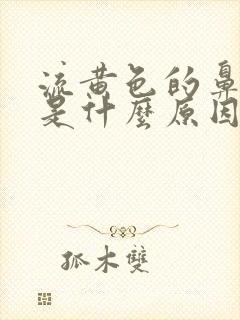 流黄色的鼻
是什麼原因
孤木雙